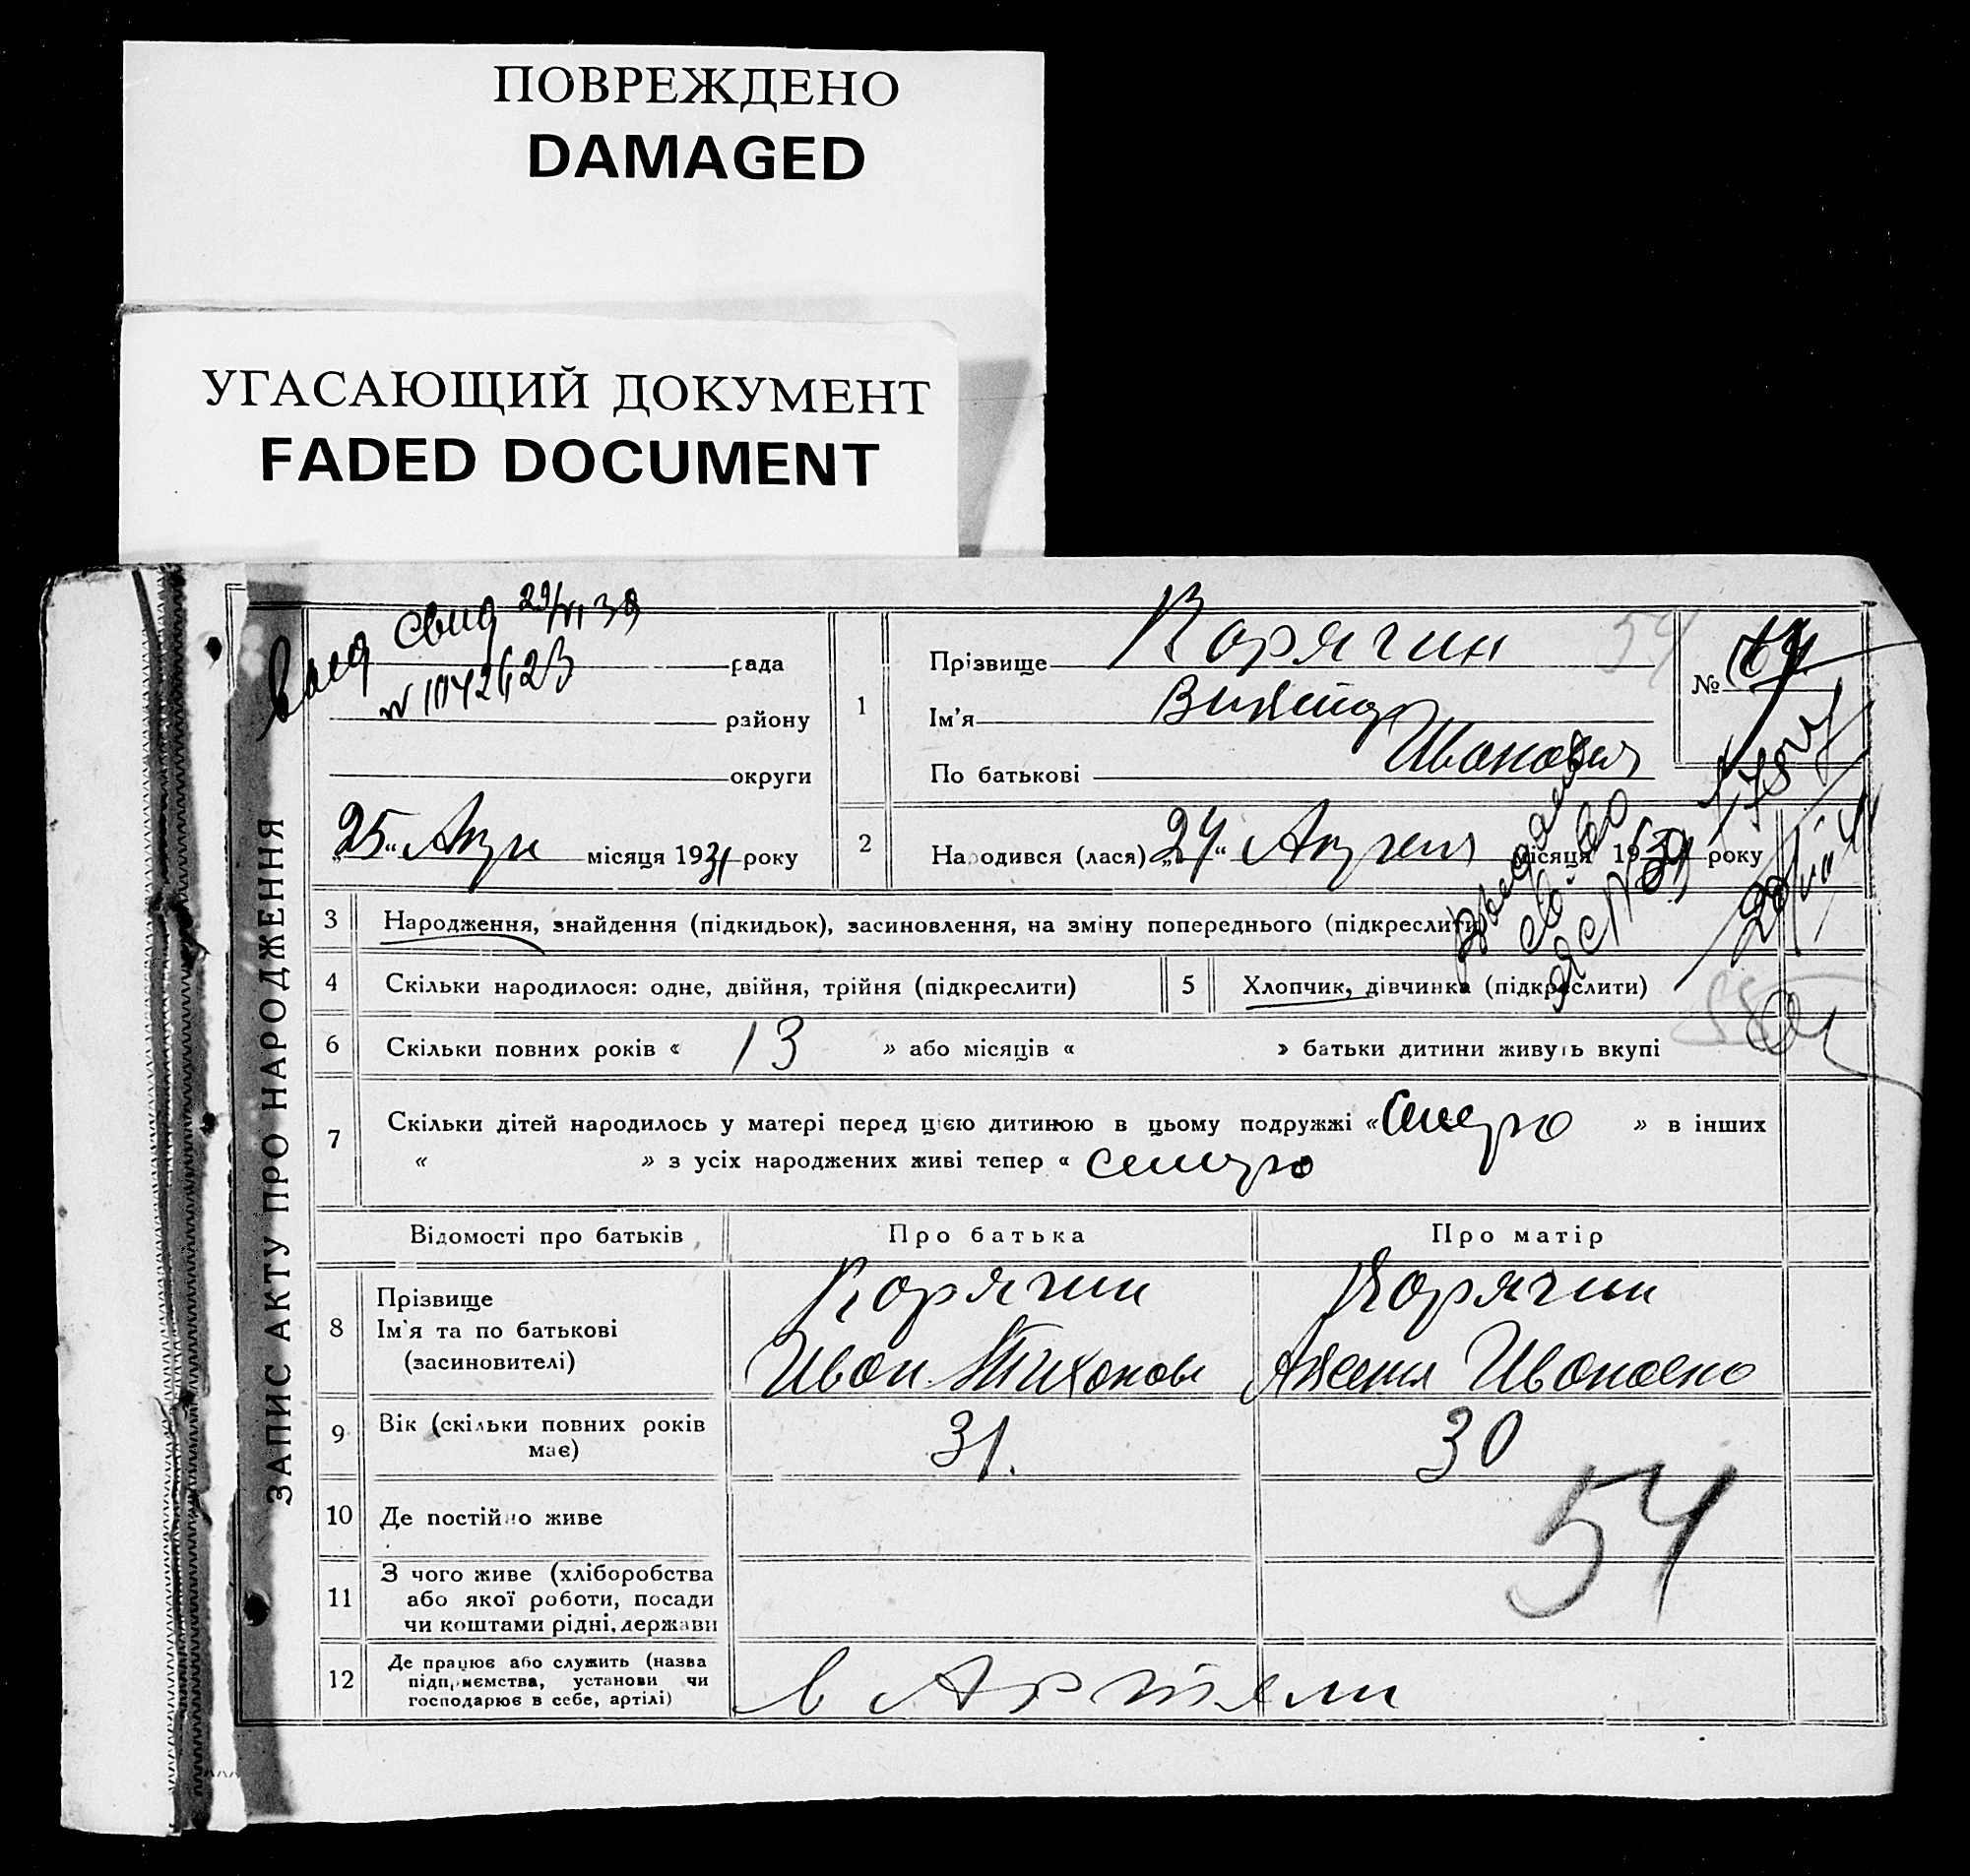 ПОВРЕЖДЕНО
DAMAGED
УГАСАЮЩИЙ ДОКУМЕНТ
FADED DOCUMENT
ЗАПИС АКТУ ПРО НАРОДЖЕННЯ
свид 29/VI 39
рада
району
округи
25 місяця 1931 року
1
Прізвище Корягин 54
Ім'я
По батькові Иванович
№
2
Народився (лася) „24“ Апреля місяця 19 року
3 Народження, знайдення (підкидьок), засиновлення, на зміну попереднього (підкреслити)
4 Скільки народилося: одне, двійня, трійня (підкреслити)
5 Хлопчик, дівчинка (підкреслити)
6 Скільки повних років « 13 » або місяців « » батьки дитини живуть вкупі
7 Скільки дітей народилось у матері перед цією дитиною в цьому подружжі « » в інших
« » з усіх народжених живі тепер «
Відомості про батьків Про батька Про матір
8 Прізвище Корягин Корягин
Ім'я та по батькові
(засиновителі) Иван Тихонов
9 Вік (скільки повних років має) 31. 30
10 Де постійно живе
54
11 З чого живе (хліборобства
або якої роботи, посади
чи коштами рідні, держави
12 Де працює або служить (назва
підприємства, установи чи
господарює в себе, артілі)
в Артели